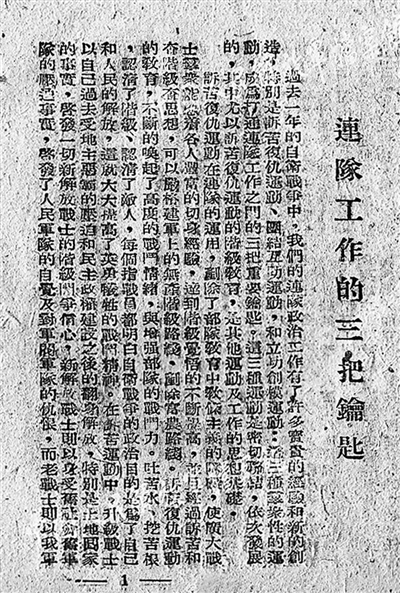 連隊工作的三把鑰匙
過去一年的自衛戰爭中,我們的連隊政治工作有了許多寶貴的經驗和新的創
造,特別是訴苦復仇運動、團結互助運動、和立功創模運動;這三種羣衆性的運
動,成爲打通連隊工作之門的三把重要鑰匙。這三種運動是密切聯結,依次發展
的,其中尤以訴苦復仇運動的階級教育,是其他運動及工作的思想基礎。
訴苦復仇運動在連隊的運用,剷除了部隊教育中教條主義的殘餘,使廣大戰
士羣衆能憑藉各人豐富的切身經驗,達到階級覺悟的不斷提高,並且經過訴苦和
查階級查思想,可以嚴格建軍上的無產階級路綫,剷除富農路綫。訴苦復仇運動
的教育,不斷的喚起了高度的戰鬥情緒,與增强部隊的戰鬥力。吐苦水、挖苦根
,認清了階級、認清了敵人,每個指戰員都明白自衛戰爭的政治目的是爲了自己
和人民的解放,這就大大提高了英勇犧牲的戰鬥精神。在訴苦運動中,升級戰士
以自己過去受地主惡霸的壓迫和民主政權建設之後的翻身解放,特別是土地回家
的事實,啓發一切新解放戰士的階級鬥爭信心,新解放戰士則以身受舊社會舊軍
隊的壓迫事實,啓發了人民軍隊的自覺及對軍閥軍隊的仇恨,而老戰士則以我軍
— 1 —